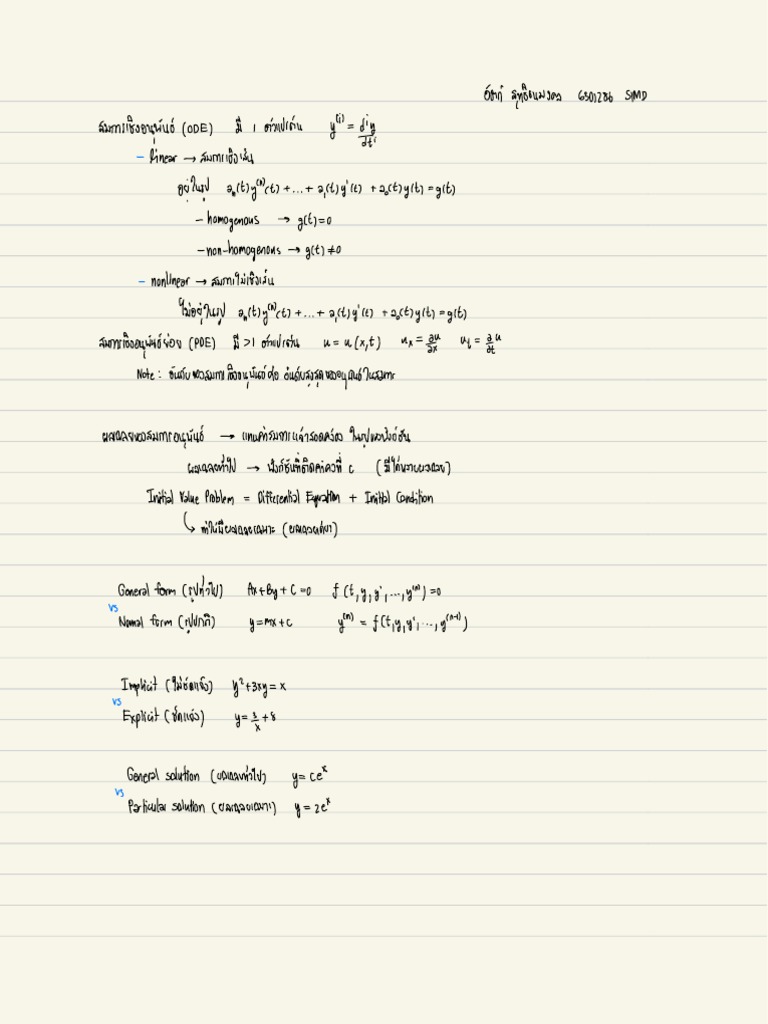 6501286 SIMD
สมการเชิงอนุพันธ์ (ODE) มี 1 ตัวแปรต้น y^(i) = d^i y / dt^i
- linear → สมการเชิงเส้น
อยู่ในรูป aₙ(t)y^(n)(t) + ... + a₁(t)y'(t) + a₀(t)y(t) = g(t)
- homogenous → g(t) = 0
- non-homogenous → g(t) ≠ 0
- nonlinear → สมการไม่เชิงเส้น
ไม่อยู่ในรูป aₙ(t)y^(n)(t) + ... + a₁(t)y'(t) + a₀(t)y(t) = g(t)
สมการเชิงอนุพันธ์ย่อย (PDE) มี >1 ตัวแปรต้น u = u(x,t) uₓ = ∂u/∂x uₜ = ∂u/∂t
Note : อันดับของสมการเชิงอนุพันธ์คือ อันดับสูงสุดของอนุพันธ์ในสมการ
ผลเฉลยของสมการอนุพันธ์ → แทนค่าสมการแล้วสอดคล้อง ในรูปของฟังก์ชัน
ผลเฉลยทั่วไป → ฟังก์ชันที่ติดค่าคงที่ c (มีได้หลายผลเฉลย)
Initial Value Problem = Differential Equation + Initial Condition
ทำให้มีผลเฉลยเฉพาะ (ผลเฉลยเดียว)
General form (รูปทั่วไป) Ax + By + C = 0 f(t, y, y', ..., y^(n)) = 0
vs
Normal form (รูปปกติ) y = mx + c y^(n) = f(t, y, y', ..., y^(n-1))
Implicit (ไม่ชัดแจ้ง) y² + 3xy = x
vs
Explicit (ชัดแจ้ง) y = 3/x + 8
General solution (ผลเฉลยทั่วไป) y = ce^x
vs
Particular solution (ผลเฉลยเฉพาะ) y = 2e^x